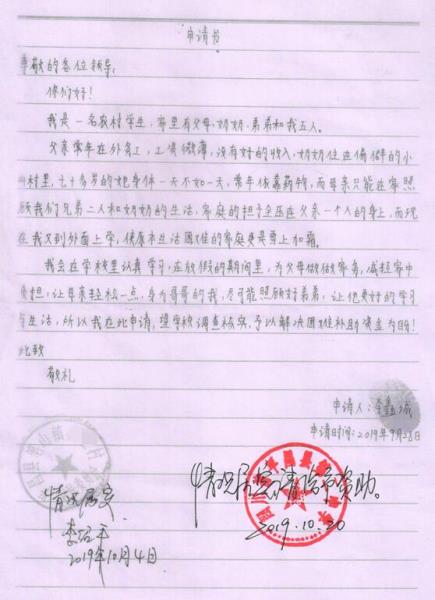 申请书
尊敬的各位领导:
你们好!
我是一名农村学生,家里有父母、奶奶、弟弟和我五人。
父亲常年在外务工,工资微薄,没有好的收入,奶奶住在偏僻的小
山村里,七十多岁的她身体一天不如一天,常年依靠药物,而母亲只能在家照
顾我们兄弟二人和奶奶的生活,家庭的担子全压在父亲一个人的身上,而现
在我又到外面上学,使原本生活困难的家庭更是雪上加霜。
我会在学校里认真学习,在放假的期间里,为父母做做家务,减轻家中
负担,让母亲轻松一点,身为哥哥的我,尽可能照顾好弟弟,让他更好的学习
与生活,所以我在此申请,望学校调查核实,予以解决困难补助资金为盼!
此致
敬礼
申请人:李鑫
申请时间:2019年9月28日
情况属实
2019年10月4日
情况属实,请给予资助。
2019.10.20